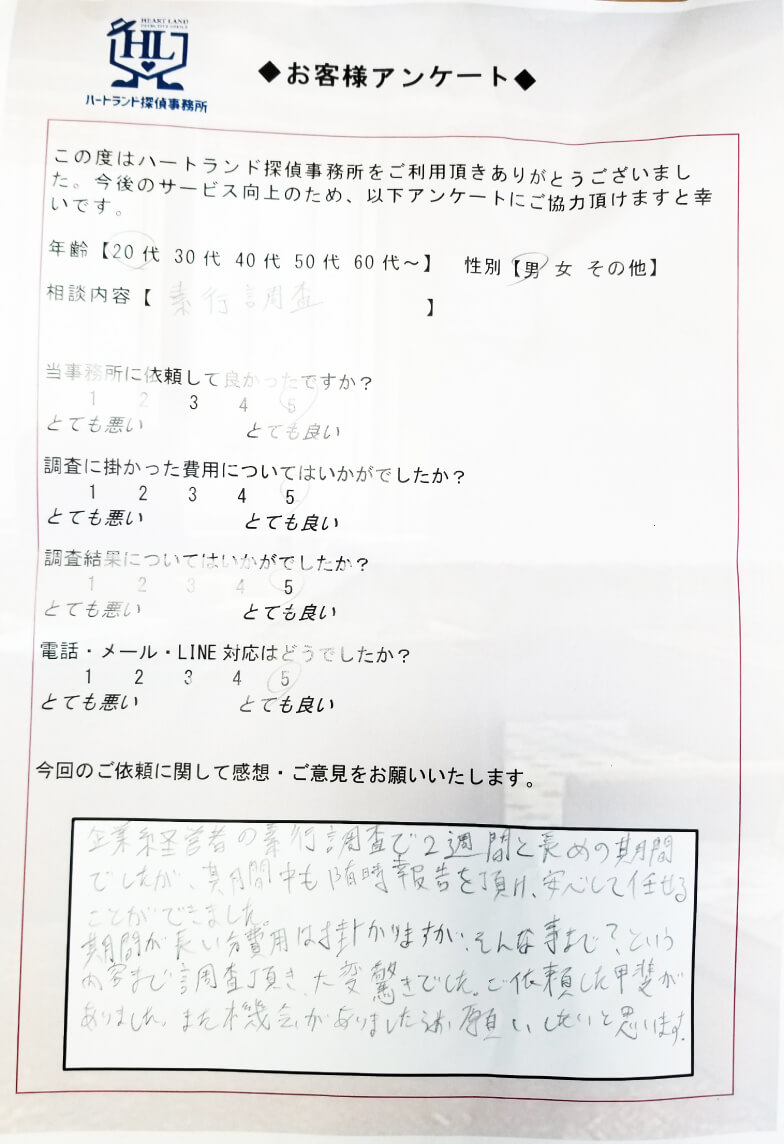 HEART LAND
DETECTIVE OFFICE
HL
ハートランド探偵事務所
◆お客様アンケート◆
この度はハートランド探偵事務所をご利用頂きありがとうございまし
た。今後のサービス向上のため、以下アンケートにご協力頂けますと幸
いです。
年齢【20代 30代 40代 50代 60代～】 性別【男 女 その他】
相談内容【 素行調査 】
当事務所に依頼して良かったですか？
1 2 3 4 5
とても悪い とても良い
調査に掛かった費用についてはいかがでしたか？
1 2 3 4 5
とても悪い とても良い
調査結果についてはいかがでしたか？
1 2 3 4 5
とても悪い とても良い
電話・メール・LINE対応はどうでしたか？
1 2 3 4 5
とても悪い とても良い
今回のご依頼に関して感想・ご意見をお願いいたします。
企業経営者の素行調査で2週間と長めの期間
でしたが、期間中も随時報告を頂け、安心して任せる
ことができました。
期間が長い分費用は掛かりますが、そんな事まで？という
内容まで調査頂き、大変驚きでした。ご依頼した甲斐が
ありました。また機会がありましたらお願いしたいと思います。